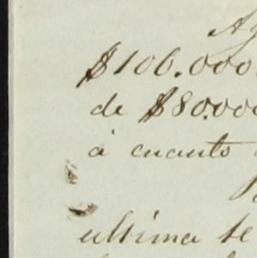 Ay
$106.000
de $80.000
à cuanto
ultima te